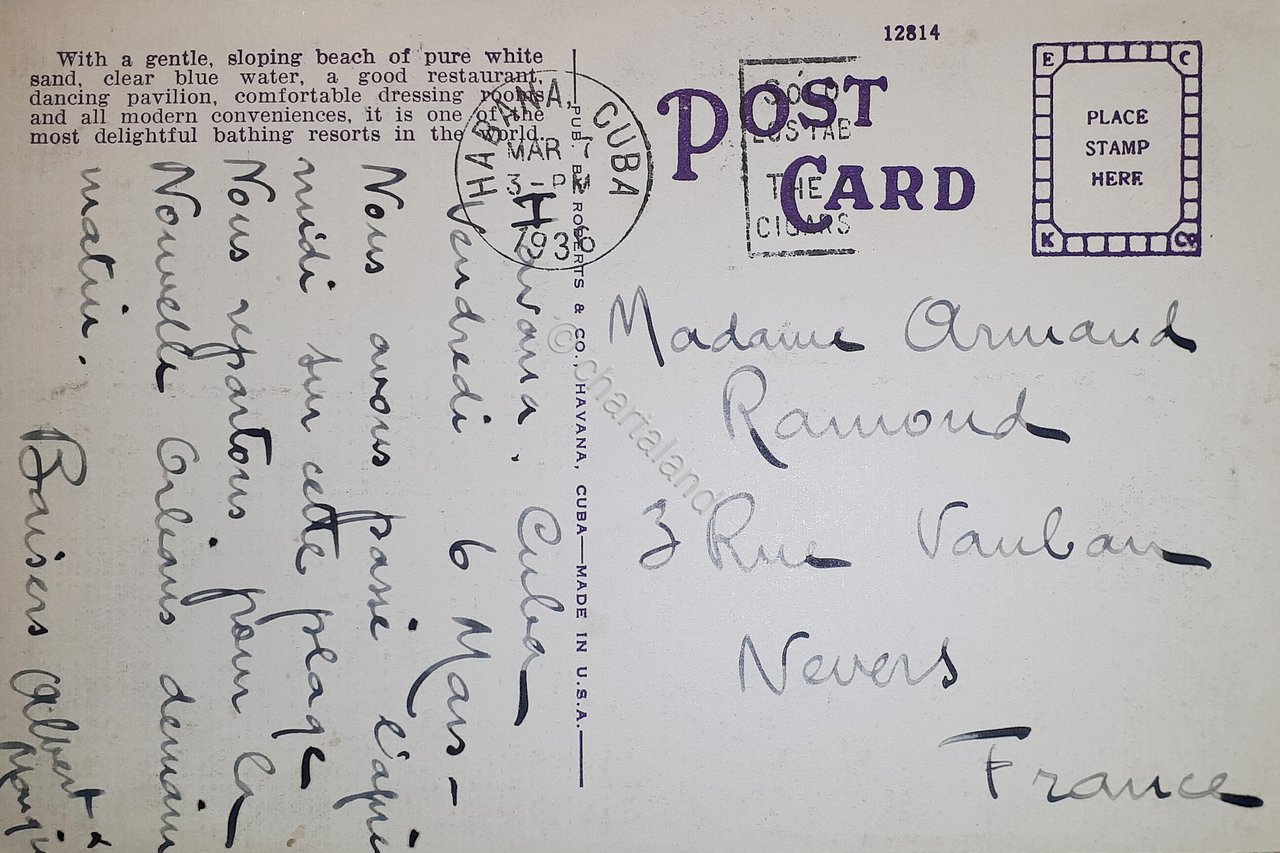 12814
With a gentle, sloping beach of pure white
sand, clear blue water, a good restaurant,
dancing pavilion, comfortable dressing rooms
and all modern conveniences, it is one of the
most delightful bathing resorts in the world.
POST
CARD
E C
K Co
PLACE
STAMP
HERE
HABANA, CUBA
MAR 7
3-PM
1936
THE
CIGARS
PUB. BY ROBERTS & CO., HAVANA, CUBA—MADE IN U.S.A.
© chartaland
Havana. Cuba
Vendredi 6 Mars-
Nous avons passé l'après
midi sur cette plage
Nous repartons pour la
Nouvelle Orléans demain
matin.
Baisers Albert &
Madame Armand
Ramond
3 Rue Vauban
Nevers
France